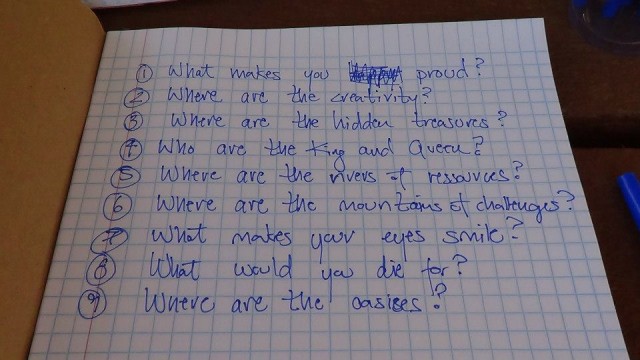 1 What makes you proud?
2 Where are the creativity?
3 Where are the hidden treasures?
4 Who are the King and Queen?
5 Where are the rivers of ressources?
6 Where are the mountains of challenges?
7 What makes your eyes smile?
8 What would you die for?
9 Where are the oasises?